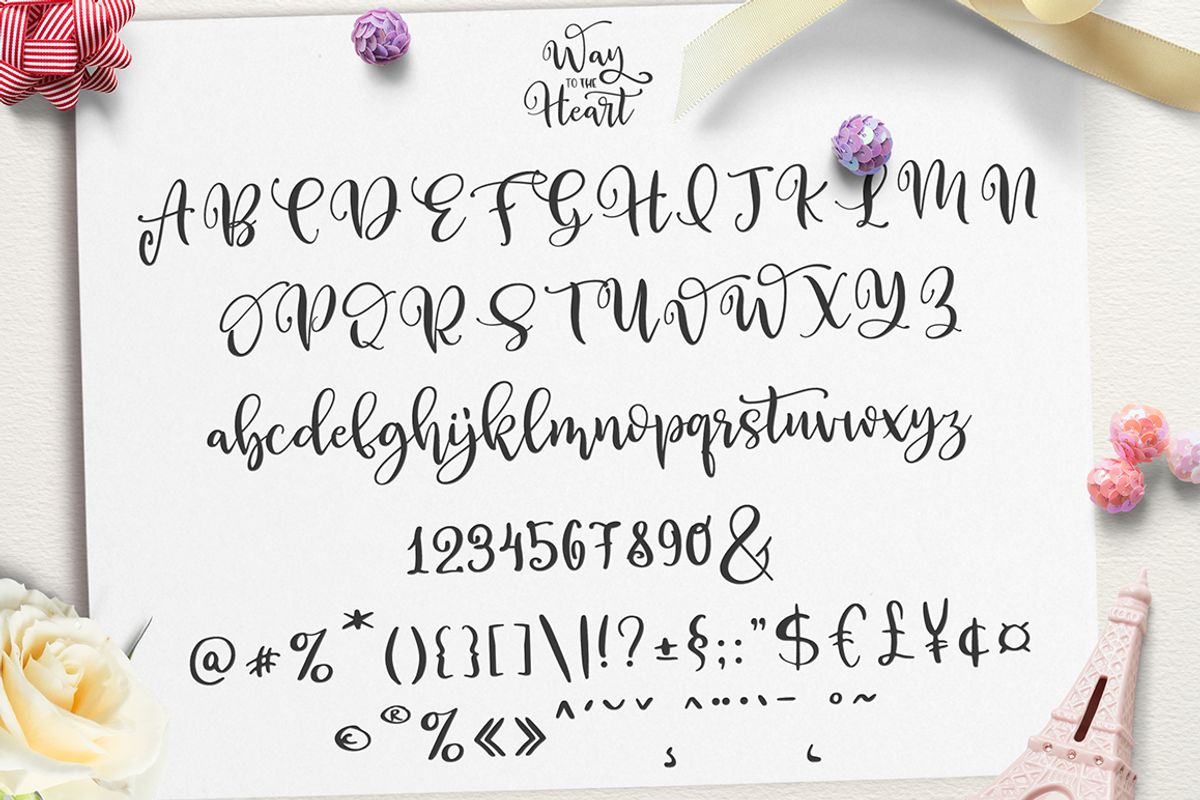 Way
TO THE
Heart
A B C D E F G H I J K L M N
O P Q R S T U V W X Y Z
abcdefghijklmnopqrstuvwxyz
1234567890&
@#%*(){}[]\|!?±§;:”$€£¥¢¤
©®%«»^´˘ˇ ^¨˙`¯ °~
¸ ˛